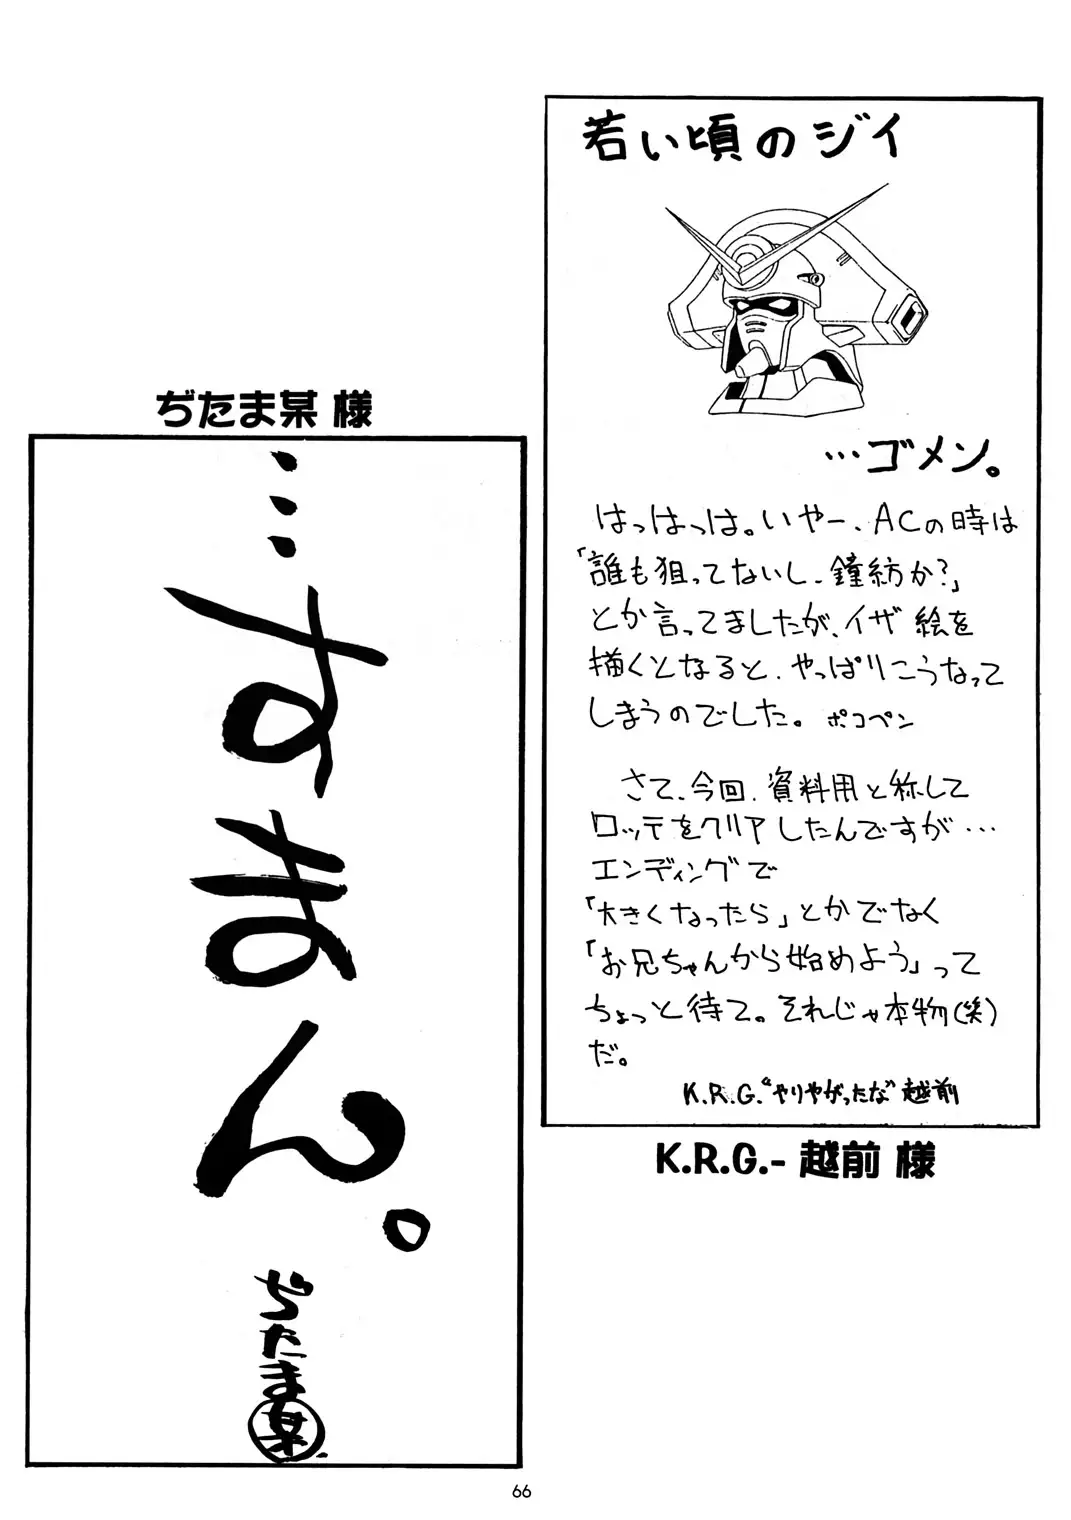 若い頃のジイ
…ゴメン。
はっはっは。いやー、ACの時は
「誰も狙ってないし、鐘紡か?」
とか言ってましたが、イザ 絵を
描くとなると、やっぱりこうなって
しまうのでした。 ポコペン
さて、今回、資料用と称して
ロッテをクリアしたんですが…
エンディングで
「大きくなったら」とかでなく
「お兄ちゃんから始めよう」って
ちょっと待て。それじゃ本物(笑)
だ。
K.R.G.“やりやがったな”越前
K.R.G.- 越前 様
ぢたま某 様
…すまん。
ぢたま某
66